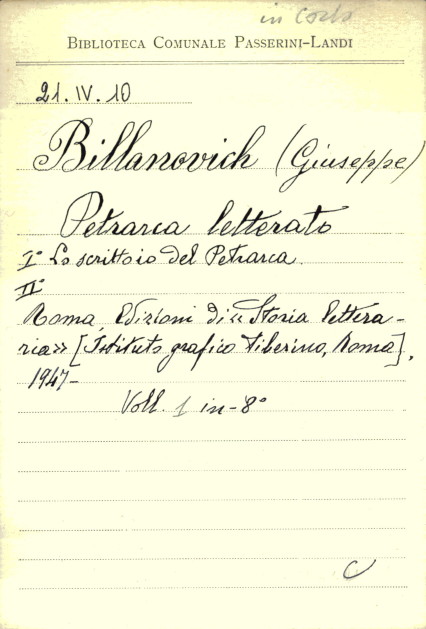 in corso
BIBLIOTECA COMUNALE PASSERINI-LANDI
21. IV. 10
Billanovich (Giuseppe)
Petrarca letterato
I° Lo scrittoio del Petrarca.
II°
Roma, Edizioni di "Storia lettera-
ria» [Istituto grafico Tiberino, Roma],
1947-
Voll. 1 in-8°
C